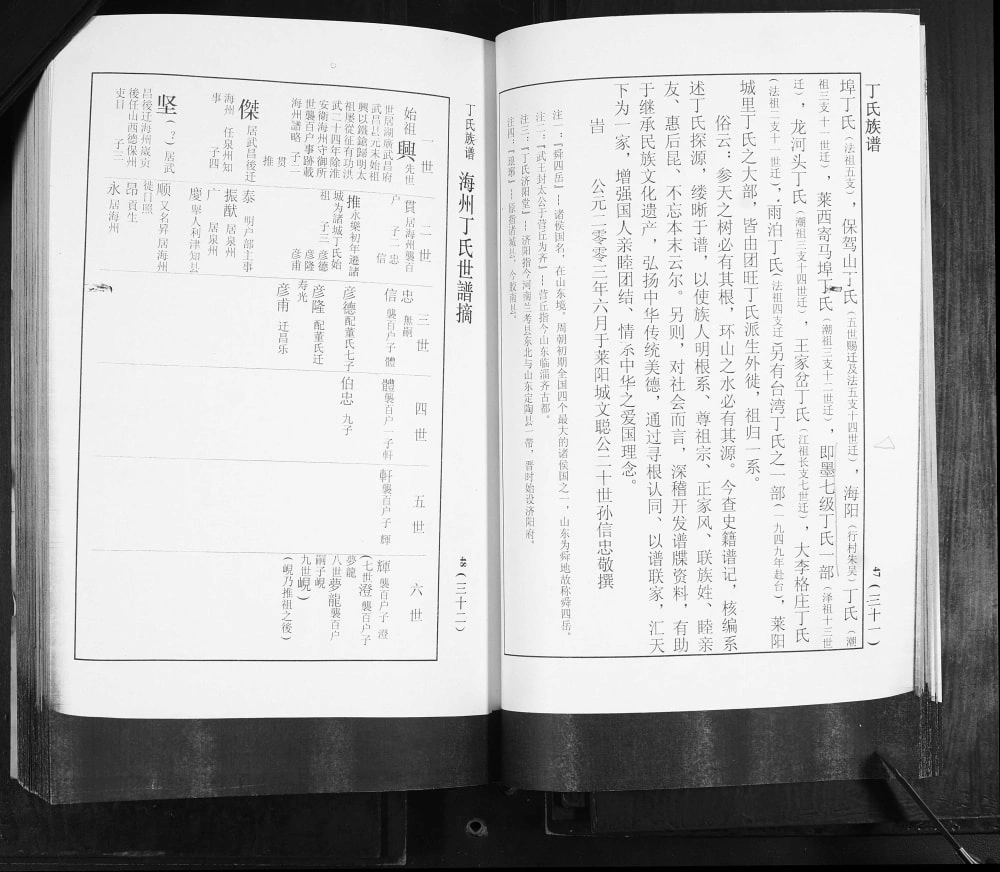 丁氏族谱
47（三十一）
埠丁氏（法祖五支），保驾山丁氏（五世赐迁及法五支十四世迁），海阳（行村朱吴）丁氏（潮
祖三支十一世迁），莱西寄马埠丁氏（潮祖三支十二世迁），即墨七级丁氏一部（泽祖十三世
迁），龙河头丁氏（潮祖三支十四世迁），王家岔丁氏（江祖长支七世迁），大李格庄丁氏
（法祖二支十一世迁），雨泊丁氏（法祖四支迁）另有台湾丁氏之一部（一九四九年赴台），莱阳
城里丁氏之大部，皆由团旺丁氏派生外徙，祖归一系。
俗云：参天之树必有其根，环山之水必有其源。今查史籍谱记，核编系
述丁氏探源，缕晰于谱，以使族人明根系、尊祖宗、正家风、联族姓、睦亲
友、惠后昆、不忘本末云尔。另则，对社会而言，深稽开发谱牒资料，有助
于继承民族文化遗产，弘扬中华传统美德，通过寻根认同、以谱联家，汇天
下为一家，增强国人亲睦团结、情系中华之爱国理念。
旹 公元二零零三年六月于莱阳城文聪公二十世孙信忠敬撰
注一：『舜四岳』—诸侯国名，在山东境。周朝初期全国四个最大的诸侯国之一，山东为舜地故称舜四岳。
注二：『武王封太公于营丘为齐』—营丘指今山东临淄齐古都。
注三：『丁氏济阳堂』—济阳指今河南兰考县东北与山东定陶县一带，晋时始设济阳府。
注四：『琅琊』—原指诸城县，今胶南县。
丁氏族谱 海州丁氏世譜摘
48（三十二）
一世
二世
三世
四世
五世
六世
始祖興 先世
世居湖廣武昌府
武昌县元末始祖
興以鐵鎗歸明太
祖屡從征有功洪
武二十四年除淮
安衛海州守御所
世襲百户事跡載
海州譜略 子二
貫
推
傑 居武昌後迁
海州 任泉州知
事 子四
坚（？）居武
昌後迁海州歲贡
後任山西德保州
吏目 子三
貫 居海州襲百
户 子二 忠
信
推 永樂初年遷諸
城为諸城丁氏始
祖 子三 彦德
彦隆
彦甫
泰 明户部主事
振猷 居泉州
广 居泉州
慶 舉人利津知县
顺 又名昇居海州
徙日照
昂 贡生
永 居海州
忠 無嗣
信 襲百户子 體
彦德 配董氏七子
彦隆 配董氏迁
寿光
彦甫 迁昌乐
體 襲百户一子軒
伯忠 九子
軒 襲百户子 輝
輝 襲百户子 澄
（七世澄 襲百户子
夢龍
八世夢龍襲百户
嗣子峴
九世峴）
（峴乃推祖之後）